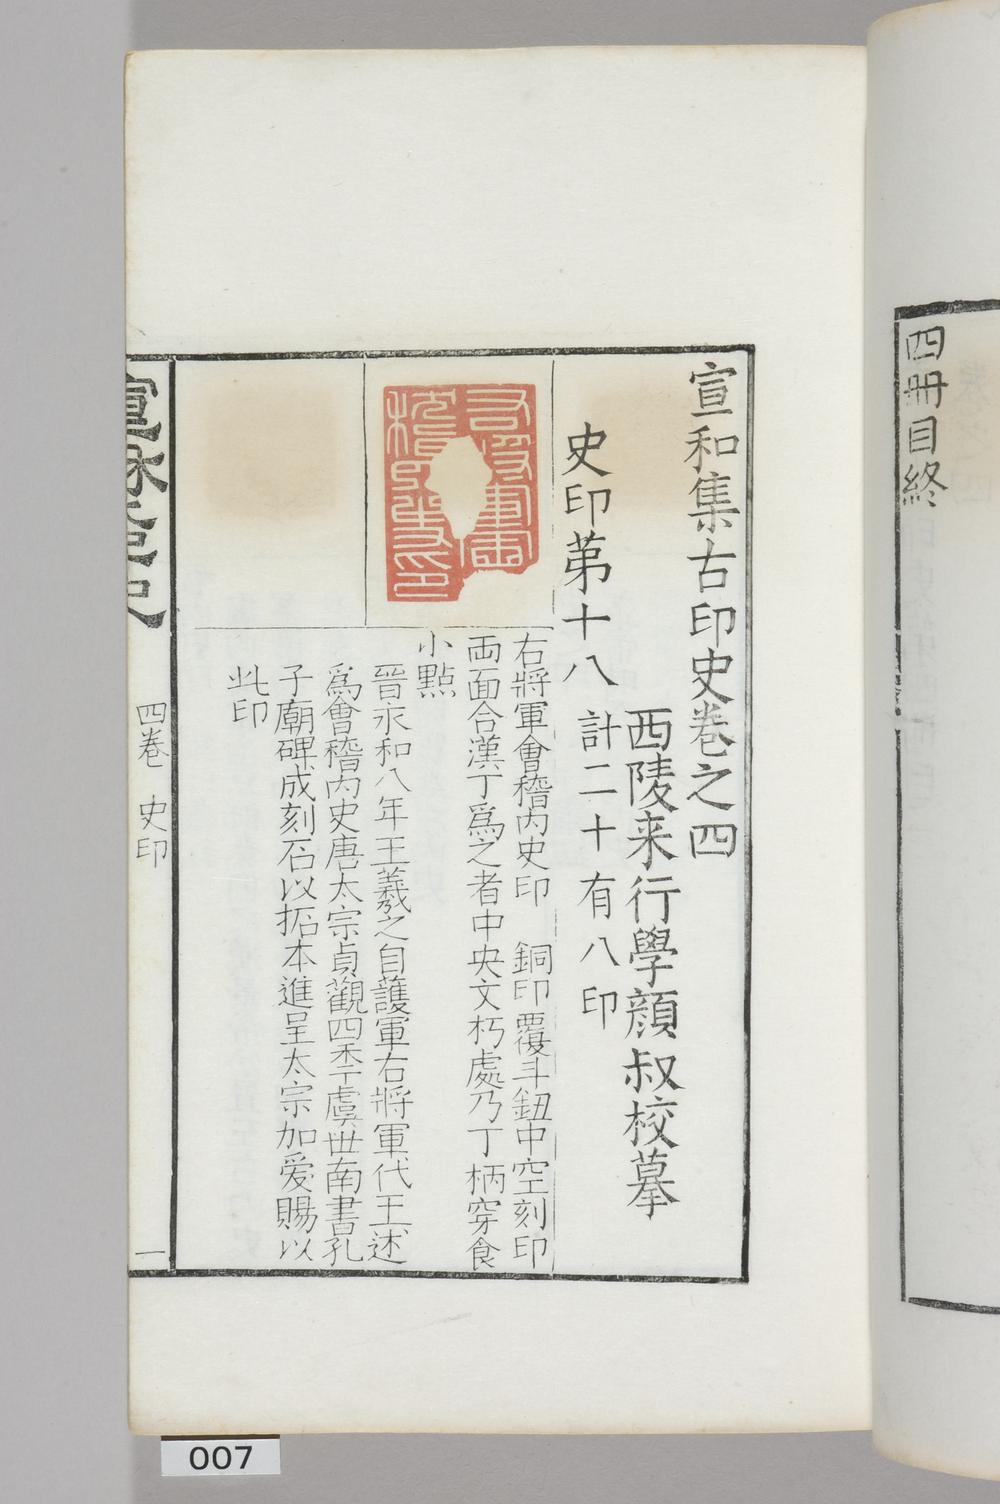 四冊目終
宣和集古印史卷之四
西陵来行學顔叔校摹
史印苐十八 計二十有八印
右將軍會稽内史印 銅印覆斗鈕中空刻印
両面合漢丁爲之者中央文朽處乃丁柄穿食
小點
晉永和八年王羲之自護軍右將軍代王述
爲會稽内史唐太宗貞觀四年虞世南書孔
子廟碑成刻石以拓本進呈太宗加愛賜以
此印
四卷 史印
一
007